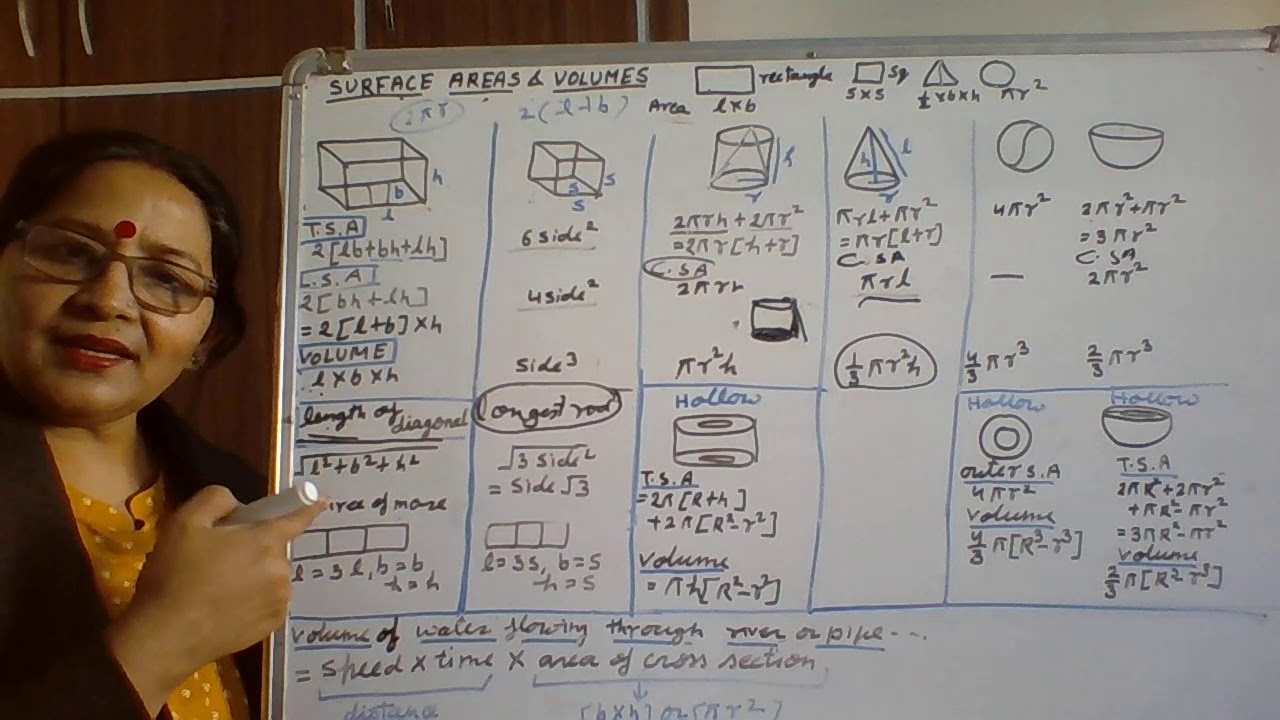 SURFACE AREAS & VOLUMES
rectangle
Sq
Area l×b
s×s
½×b×h
πr²
2πr
2(l+b)
b
h
l
s
s
s
h
r
h
l
r
T.S.A
2[lb+bh+lh]
L.S.A
2[bh+lh]
=2[l+b]×h
VOLUME
l×b×h
length of diagonal
√l²+b²+h²
l=3l, b=b
h=h
6 side²
4 side²
side³
longest rod
√3 side²
= side√3
l=3s, b=s
h=s
2πrh+2πr²
=2πr[h+r]
C.SA
2πrh
πr²h
Hollow
T.S.A
=2π[R+h]
+2π[R²-r²]
Volume
=πh[R²-r²]
πrl+πr²
=πr[l+r]
C.SA
πrl
⅓πr²h
4πr²
—
4/3 πr³
Hollow
outer S.A
4πr²
Volume
4/3 π[R³-r³]
2πr²+πr²
=3πr²
C.SA
2πr²
2/3 πr³
Hollow
T.S.A
2πR²+2πr²
+πR²-πr²
=3πR²-πr²
Volume
2/3 π[R²r³]
Volume of water flowing through river or pipe...
= Speed × time × area of cross section
distance
[b×h] or [πr²]